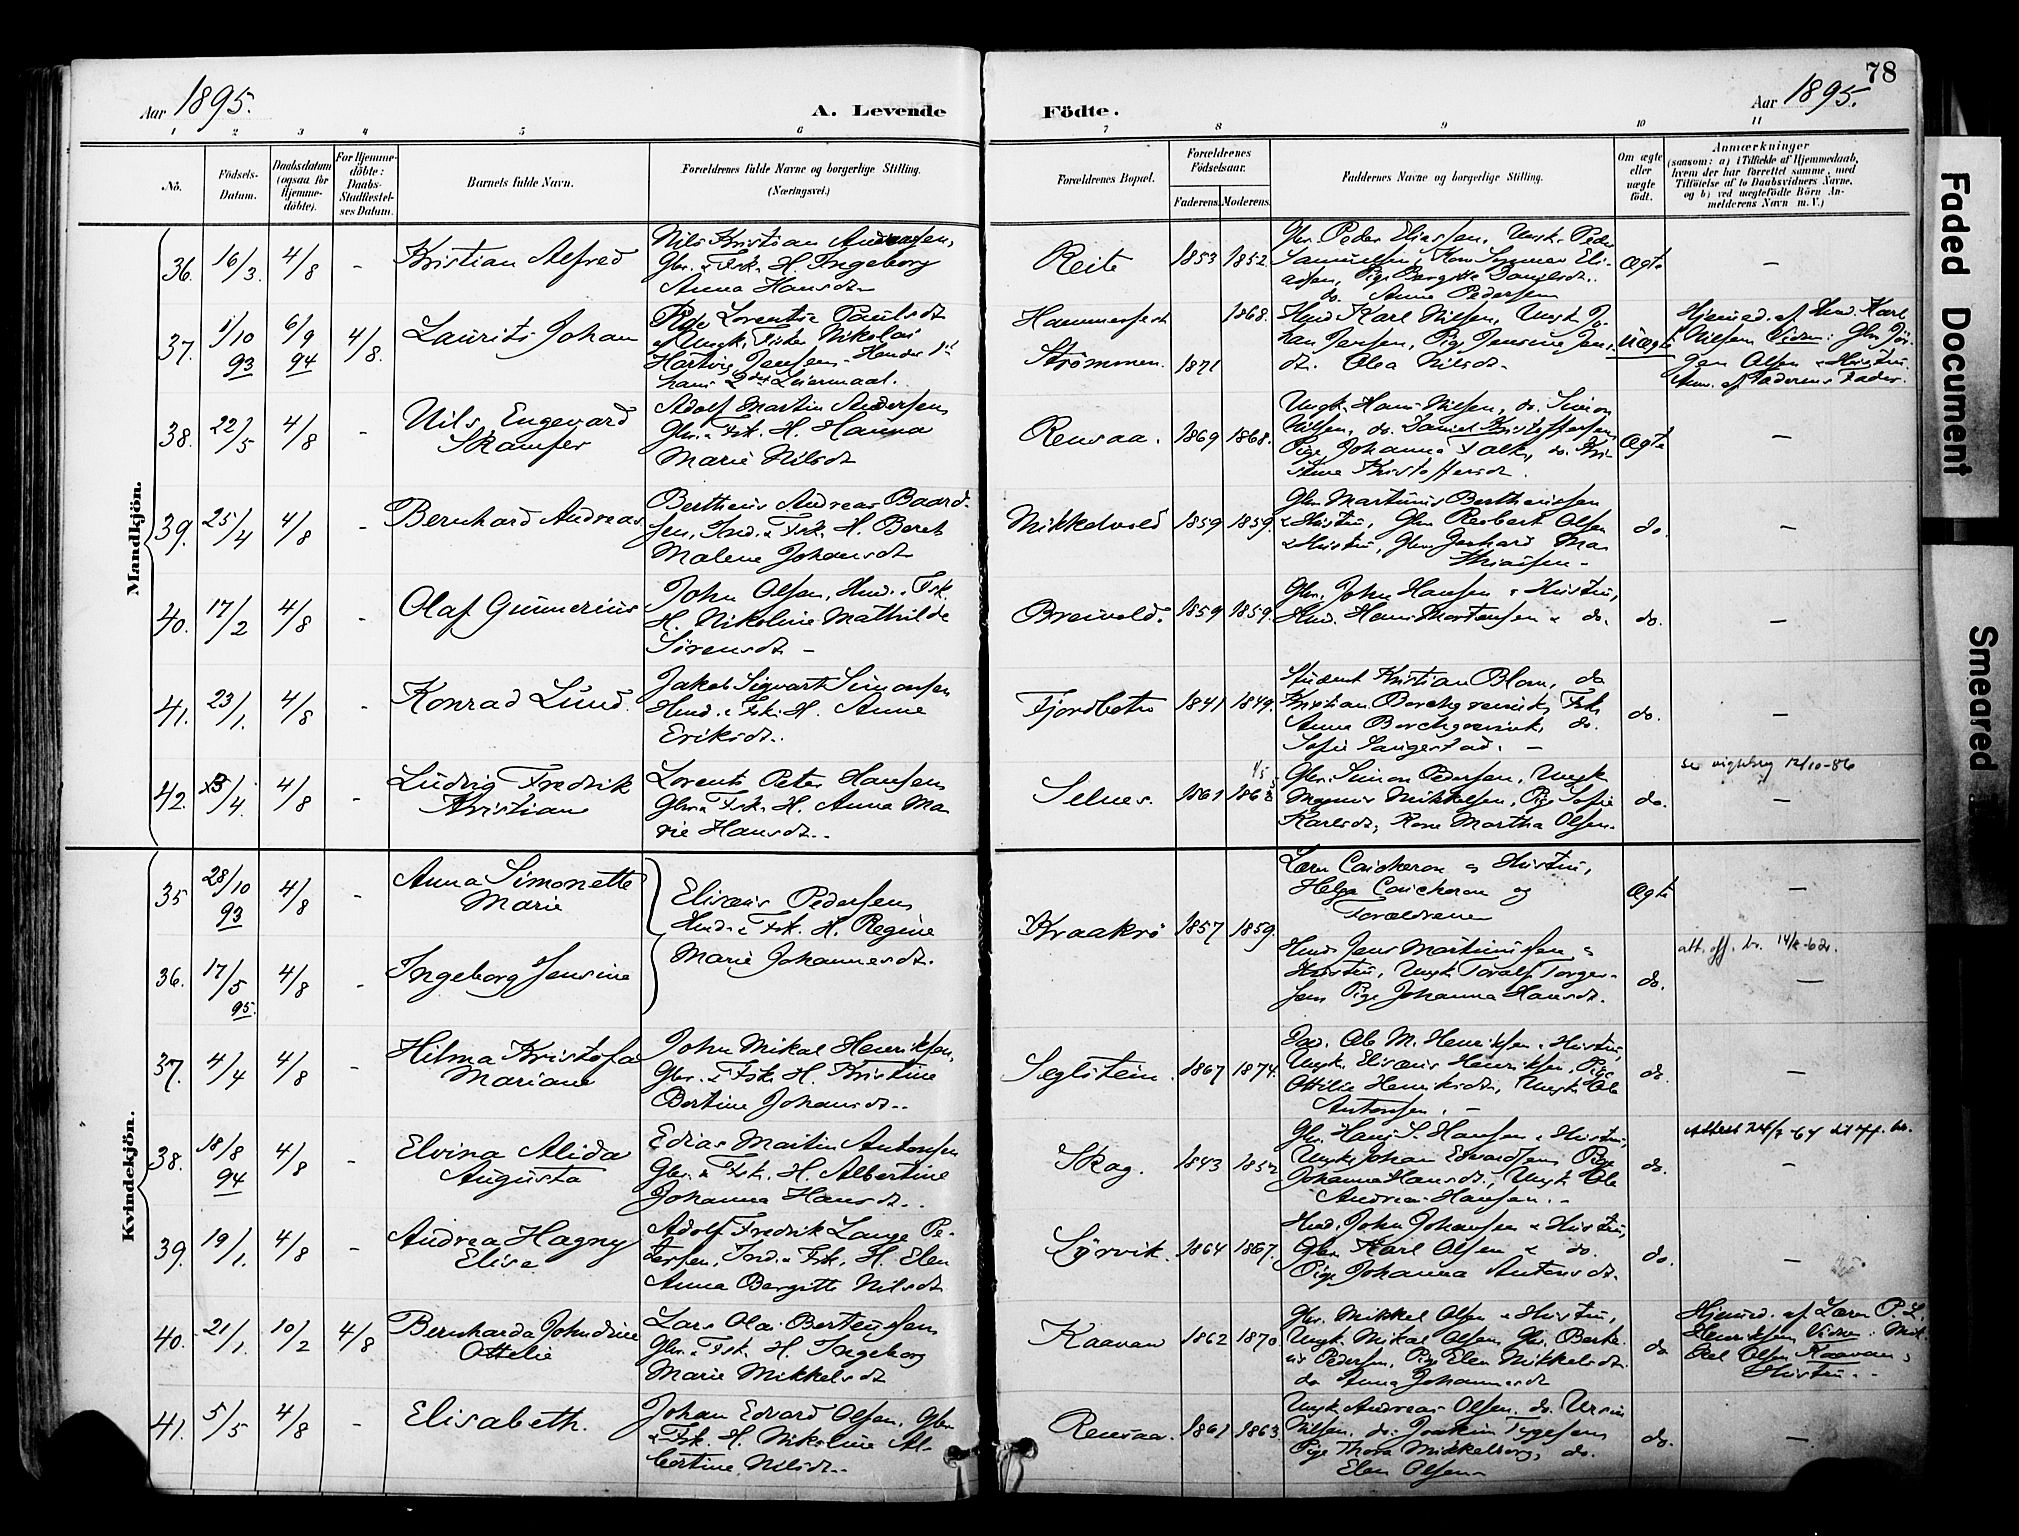 78
Aar 1895. A. Levende Fødte. Aar 1895.
1 2 3 4 5 6 7 8 9 10 11
No. Födsels-Datum. Daabsdatum (ogsaa for Hjemme-döbte). For Hjemme-döbte: Daabs-Stadfæstel-ses Datum. Barnets fulde Navn. Forældrenes fulde Navne og borgerlige Stilling. (Næringsvei.) Forældrenes Bopæl. Forældrenes Födselsaar. Faderens. Moderens. Faddernes Navne og borgerlige Stilling. Om ægte eller uægte födt. Anmærkninger
(saasom: a) i Tilfælde af Hjemmedaab, hvem der har forrettet samme, med Tilföielse af to Daabsvidners Navne, og b) ved uægtefödte Börn An-melderens Navn m. V.)
Mandkjön.
36. 16/3. 4/8 - Kristian Alfred
Nils Kristian Andersen,
Gbr. & Fsk. H. Ingeborg
Anna Hansdt.
Reite 1853 1852
Gbr. Peder Eliassen, Ungk. Peder
Samuelsen,
Pige Bergitte Danielsdt.
do. Anna Pedersen
Ægte -
37. 1/10 93 6/9 94 4/8. Laurits Johan
Pige Lorentse Paulsdt
og Ungk. Fisker Nikolai
Hartvig Jensen - Hendes 1st
hans 2det Leiermaal.
Hammerfest
Strömmen. 1871 1868.
Hmd Karl Nilsen, Ungk Jo-
han Jensen, Pige Jensine Jens-
dt. Olea Nilsdt.
Uægte
Hjemmed. af Hmd. Karl
Nilsen Vidner: Gbr. Jör-
gen Olsen & Hustru.
Anm. af Faderens Fader.
38. 22/5 4/8 - Nils Engevard
Skamfer
Adolf Martin Andersen
Gbr. & Fsk. H. Hanna
Marie Nilsdt
Rensaa. 1869 1868.
Ungk. Hans Nilsen, do. Simon
Nilsen, do. Daniel Kristoffersen,
Pige Johanna Falk, do. Kri-
stine Kristoffersdt.
Ægte -
39. 25/4 4/8 - Bernhard Andreas
Bertheus Andreas Baard-
sen, Ind. & Fsk. H. Beret
Malene Johansdt
Nikkelvold 1859 1859.
Gbr Martinus Bertheussen
& Hustru, Gbr Reibert Olsen
& Hustru, Gbr Gerhard Ma-
thiassen -
do. -
40. 17/2 4/8 - Olaf Gunnerius
John Olsen, Hmd. & Fsk.
H. Nikoline Mathilde
Sörensdt -
Breivold. 1859 1859.
Gbr. John Hansen & Hustru,
Hmd. Hans Mortensen & do.
do. -
41. 23/1. 4/8 - Konrad Lund.
Jakob Sigvart Simonsen
Hmd. & Fsk. H. Anne
Eriksdt.
Fjordbotn 1841 1849.
Student Kristian Blom, do
Kristian Borchgrevink, Frk.
Anna Borchgrevink, do.
Sofie -
do. -
42. 3/4. 4/8 - Ludvig Fredrik
Kristian
Lorents Peter Hansen
Gbr. & Fsk. H. Anna Ma-
rie Hansdt.
Selnes. 1861 1868
Gbr. Simon Pedersen, Ungk.
Magnus Mikkelsen, Pige Sofie
Karlsdt, Kone Martha Olsen.
do. -
12/10-86
Kvindekjön.
35 28/10 93 4/8 - Anna Simonette
Marie
Elisæus Pedersen
Hmd. & Fsk. H. Regine
Marie Johannesdt.
Kraakrö 1857 1859.
Helga og
Forældrene
Ægte -
36. 17/5 95. 4/8 - Ingeborg Jensine
Hmd Jens Martinussen &
Hustru, Ungk Toralf Torger-
sen Pige Johanna Hansdt.
do. -
37. 4/4 4/8 - Hilma Kristofa
Mariane
John Mikal Henriksen,
Gbr. & Fsk. H. Kristine
Bertine Johansdt.
Seglstein. 1867 1874.
Ole M. Henriksen & Hustru,
Ungk. Elisæus Henriksen, Pige
Ottilie Henriksdt, Ungk Ole
Antonsen. -
do. -
38. 18/8 94 4/8 - Elvina Alida
Augusta
Edias Martin Antonsen
Gbr. & Fsk. H. Albertine
Johanna Hansdt.
Skog. 1843 1852
Gbr. Hans S. Hansen & Hustru,
Ungk Johan Edvardsen Pige
Johanna Hansdt., Ungk Ole
Andreas Hansen. -
do. -
39. 19/1. 4/8 - Andrea Hagny
Elise
Adolf Fredrik Lange Pe-
dersen, Ind. & Fsk, H. Elen
Anna Bergitte Nilsdt
Lyrvik. 1864 1867.
Hmd. John Johansen & Hustru,
Gbr. Karl Olsen & do.
Pige Johanna Antonsdt.
do. -
40. 21/1. 10/2 4/8 Bernharda Johndine
Ottelie
Lars Olai Berteussen
Gbr. & Fsk. H. Ingeborg
Marie Mikkelsdt
Kaavan 1862 1870.
Gbr. Mikkel Olsen & Hustru,
Ungk. Mikal Olsen, Gbr. Berte-
us Pedersen, Pige Elen Mikkelsdt.
do Anna Johannesdt
do
Hjemmed. af Lærer P. L.
Henriksen Vidner: Mik-
kel Olsen Kaavan &
Hustru. -
41. 5/5 4/8 - Elisabeth.
Johan Edvard Olsen, Gbr.
& Fsk. H. Nikoline Al-
bertine Nilsdt.
Rensaa. 1861 1863.
Ungk Andreas Olsen, do.
Nilsen, do. Joakim Tygesen
Pige Thora Mikkelborg, do.
Elen Olsen
do. -
Faded Document
Smeared